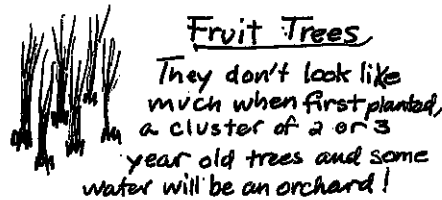 Fruit Trees
They don't look like
much when first planted,
a cluster of 2 or 3
year old trees and some
water will be an orchard!